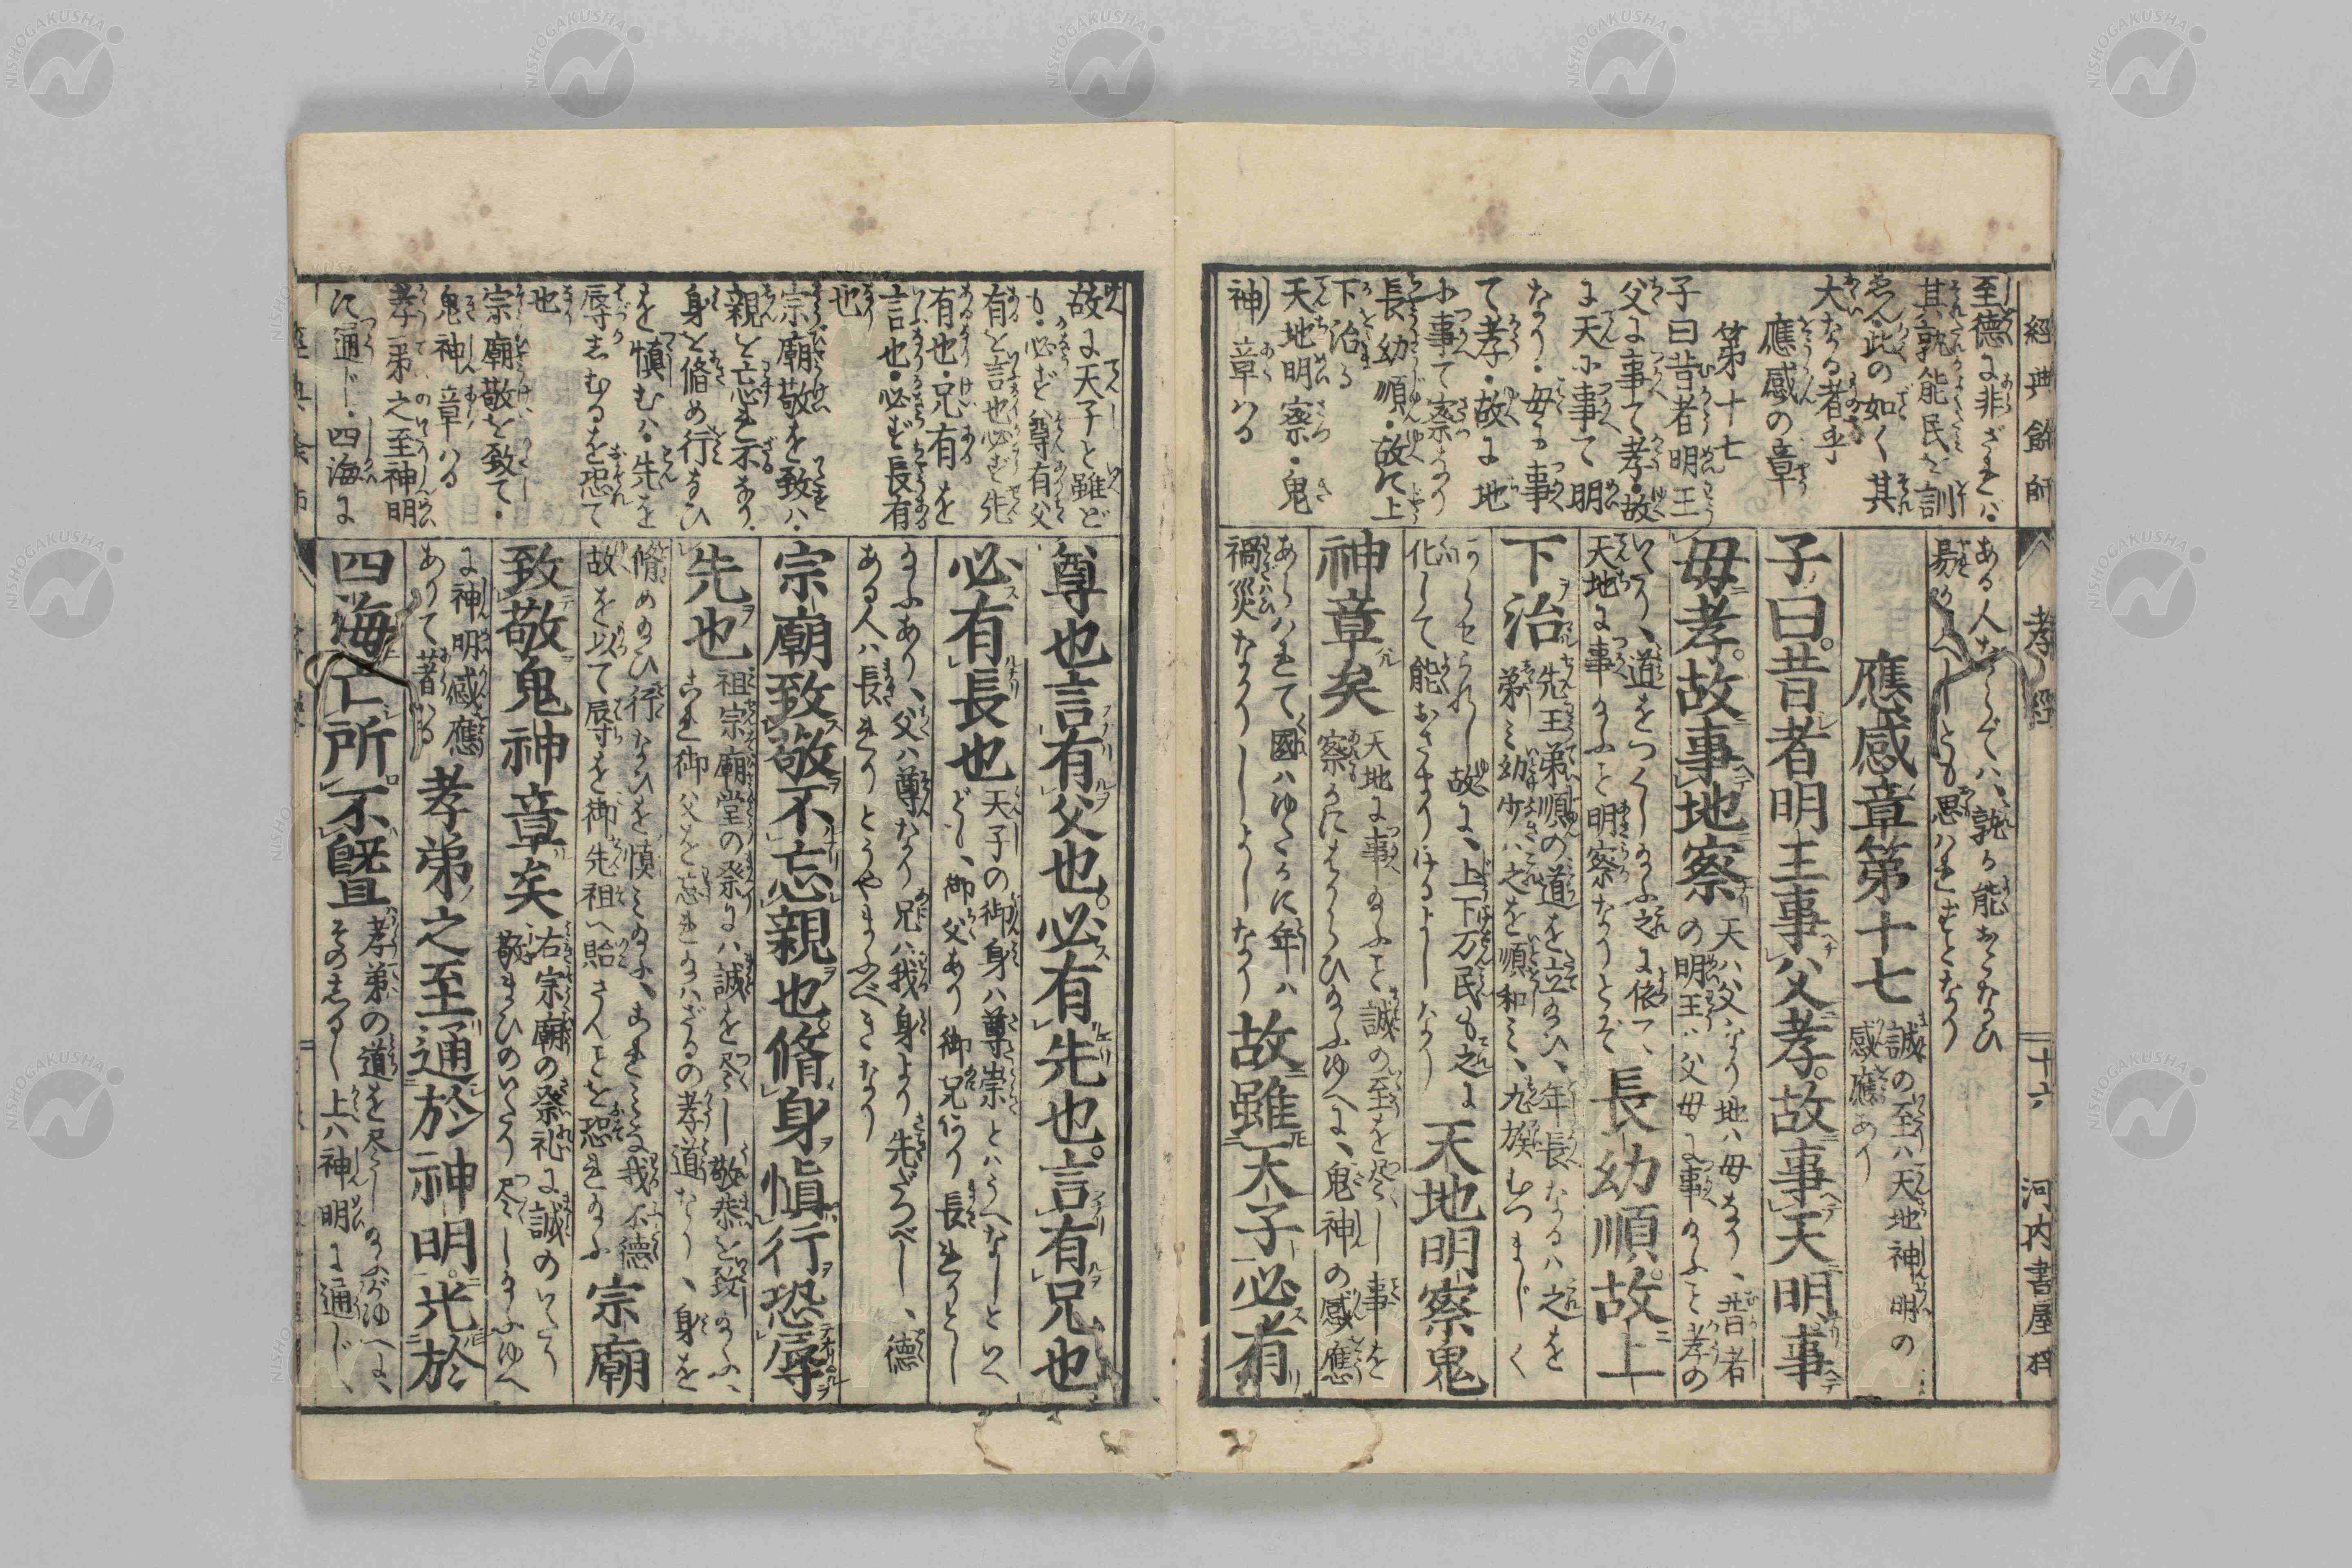 經典餘師
孝經
十六
河内書屋梓
至德に非ざれば・
其孰能民を訓
此の如く其
大なる者乎
應感の章
第十七
子曰昔者明王
父に事て孝・故
に天に事て明
なり・母に事
て孝・故に地
に事て察なり
長幼順・故に上
下治る
天地明察・鬼
神章はる
ある人ならでは、孰か能おこなひ
應感章第十七
誠の至りハ天地神明の
感應あり
子曰。昔者明王事父孝。故事天明。事
母孝。故事地察
天ハ父なり地ハ母なり、昔者
の明王ハ父母に事たまふこと孝の
道をつくしたまふ之に依て、
天地に事たまふこと明察なりとぞ
長幼順。故上
下治
先王弟順の道を立たまひ、年長なるハ之を
弟ミ幼少ハ之を順和ミ、九族むつまじく
故に、上下万民も之に
化して能おさまりけるよしなり
天地明察鬼
神章矣
天地に事たまふこと誠の至を尽し事を
察かにはからひたまふゆへに、鬼神の感應
あらハれて國ハゆたかに年ハ
禍災なかりしよしなり
故雖天子必有
故に天子と雖ど
も・必ず尊有父
有を言也必ず先
有也・兄有を
言也・必ず長有
也
宗廟敬を致ハ・
親を忘れ不るなり・
身を脩め行なひ
を慎むハ・先を
辱しむるを恐て
也
宗廟敬を致て・
鬼神章ハる
孝弟之至神明
に通じ・四海に
尊也言有父也。必有先也。言有兄也
必有長也
天子の御身ハ尊崇とハうへなしといへ
ども、御父あり御兄あり長れりとし
たまふあり、父ハ尊なり兄ハ我身より先だつべし、德
ある人ハ長れりとうやまふべきなり
宗廟致敬不忘親也。脩身愼行恐辱
先也
祖宗廟堂の祭にハ誠を尽し敬恭を致したまふ、
これ御父を忘れたまハざるの孝道なり、身を
脩めたまひ行なひを慎ミたまふ、これミな我不德
故を以て辱を御先祖へ貽さんことを恐れたまふ
宗廟
致敬鬼神章矣
右宗廟の祭礼に誠のいたり
敬まひのいたり尽したまふゆへ
に神明感應
ありて著ハる
孝弟之至通於神明。光於
四海亡所不曁
孝弟の道を尽したまふがゆへに、
そのしるし上ハ神明に通じ、